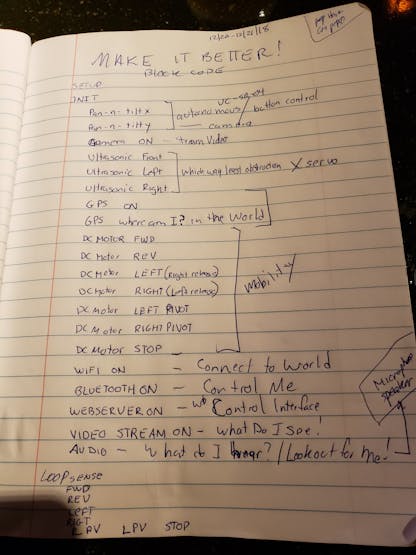 12/20-12/21/18
MAKE IT BETTER!
Block CODE
SETUP
INIT
Pan-n-tiltx
Pan-n-tilty
autonomous / button control
camera
Camera ON - Stream Video
Ultrasonic Front
Ultrasonic Left
Ultrasonic Right
which way least obstruction X servo
GPS ON
GPS where am I? in the World
DC MOTOR FWD
DC Motor REV
DC Motor LEFT (Right release)
DC Motor RIGHT (Left release)
DC Motor LEFT PIVOT
DC Motor RIGHT PIVOT
DC Motor STOP
Mobility
WIFI ON - Connect to World
BLUETOOTH ON - Control Me
WEBSERVER ON - Control Interface
VIDEO STREAM ON - What Do I See!
AUDIO - What do I hear? / Lookout for Me!
Microphone
speaker
LOOP SENSE
FWD
REV
LEFT
RIGT
RPV LPV STOP